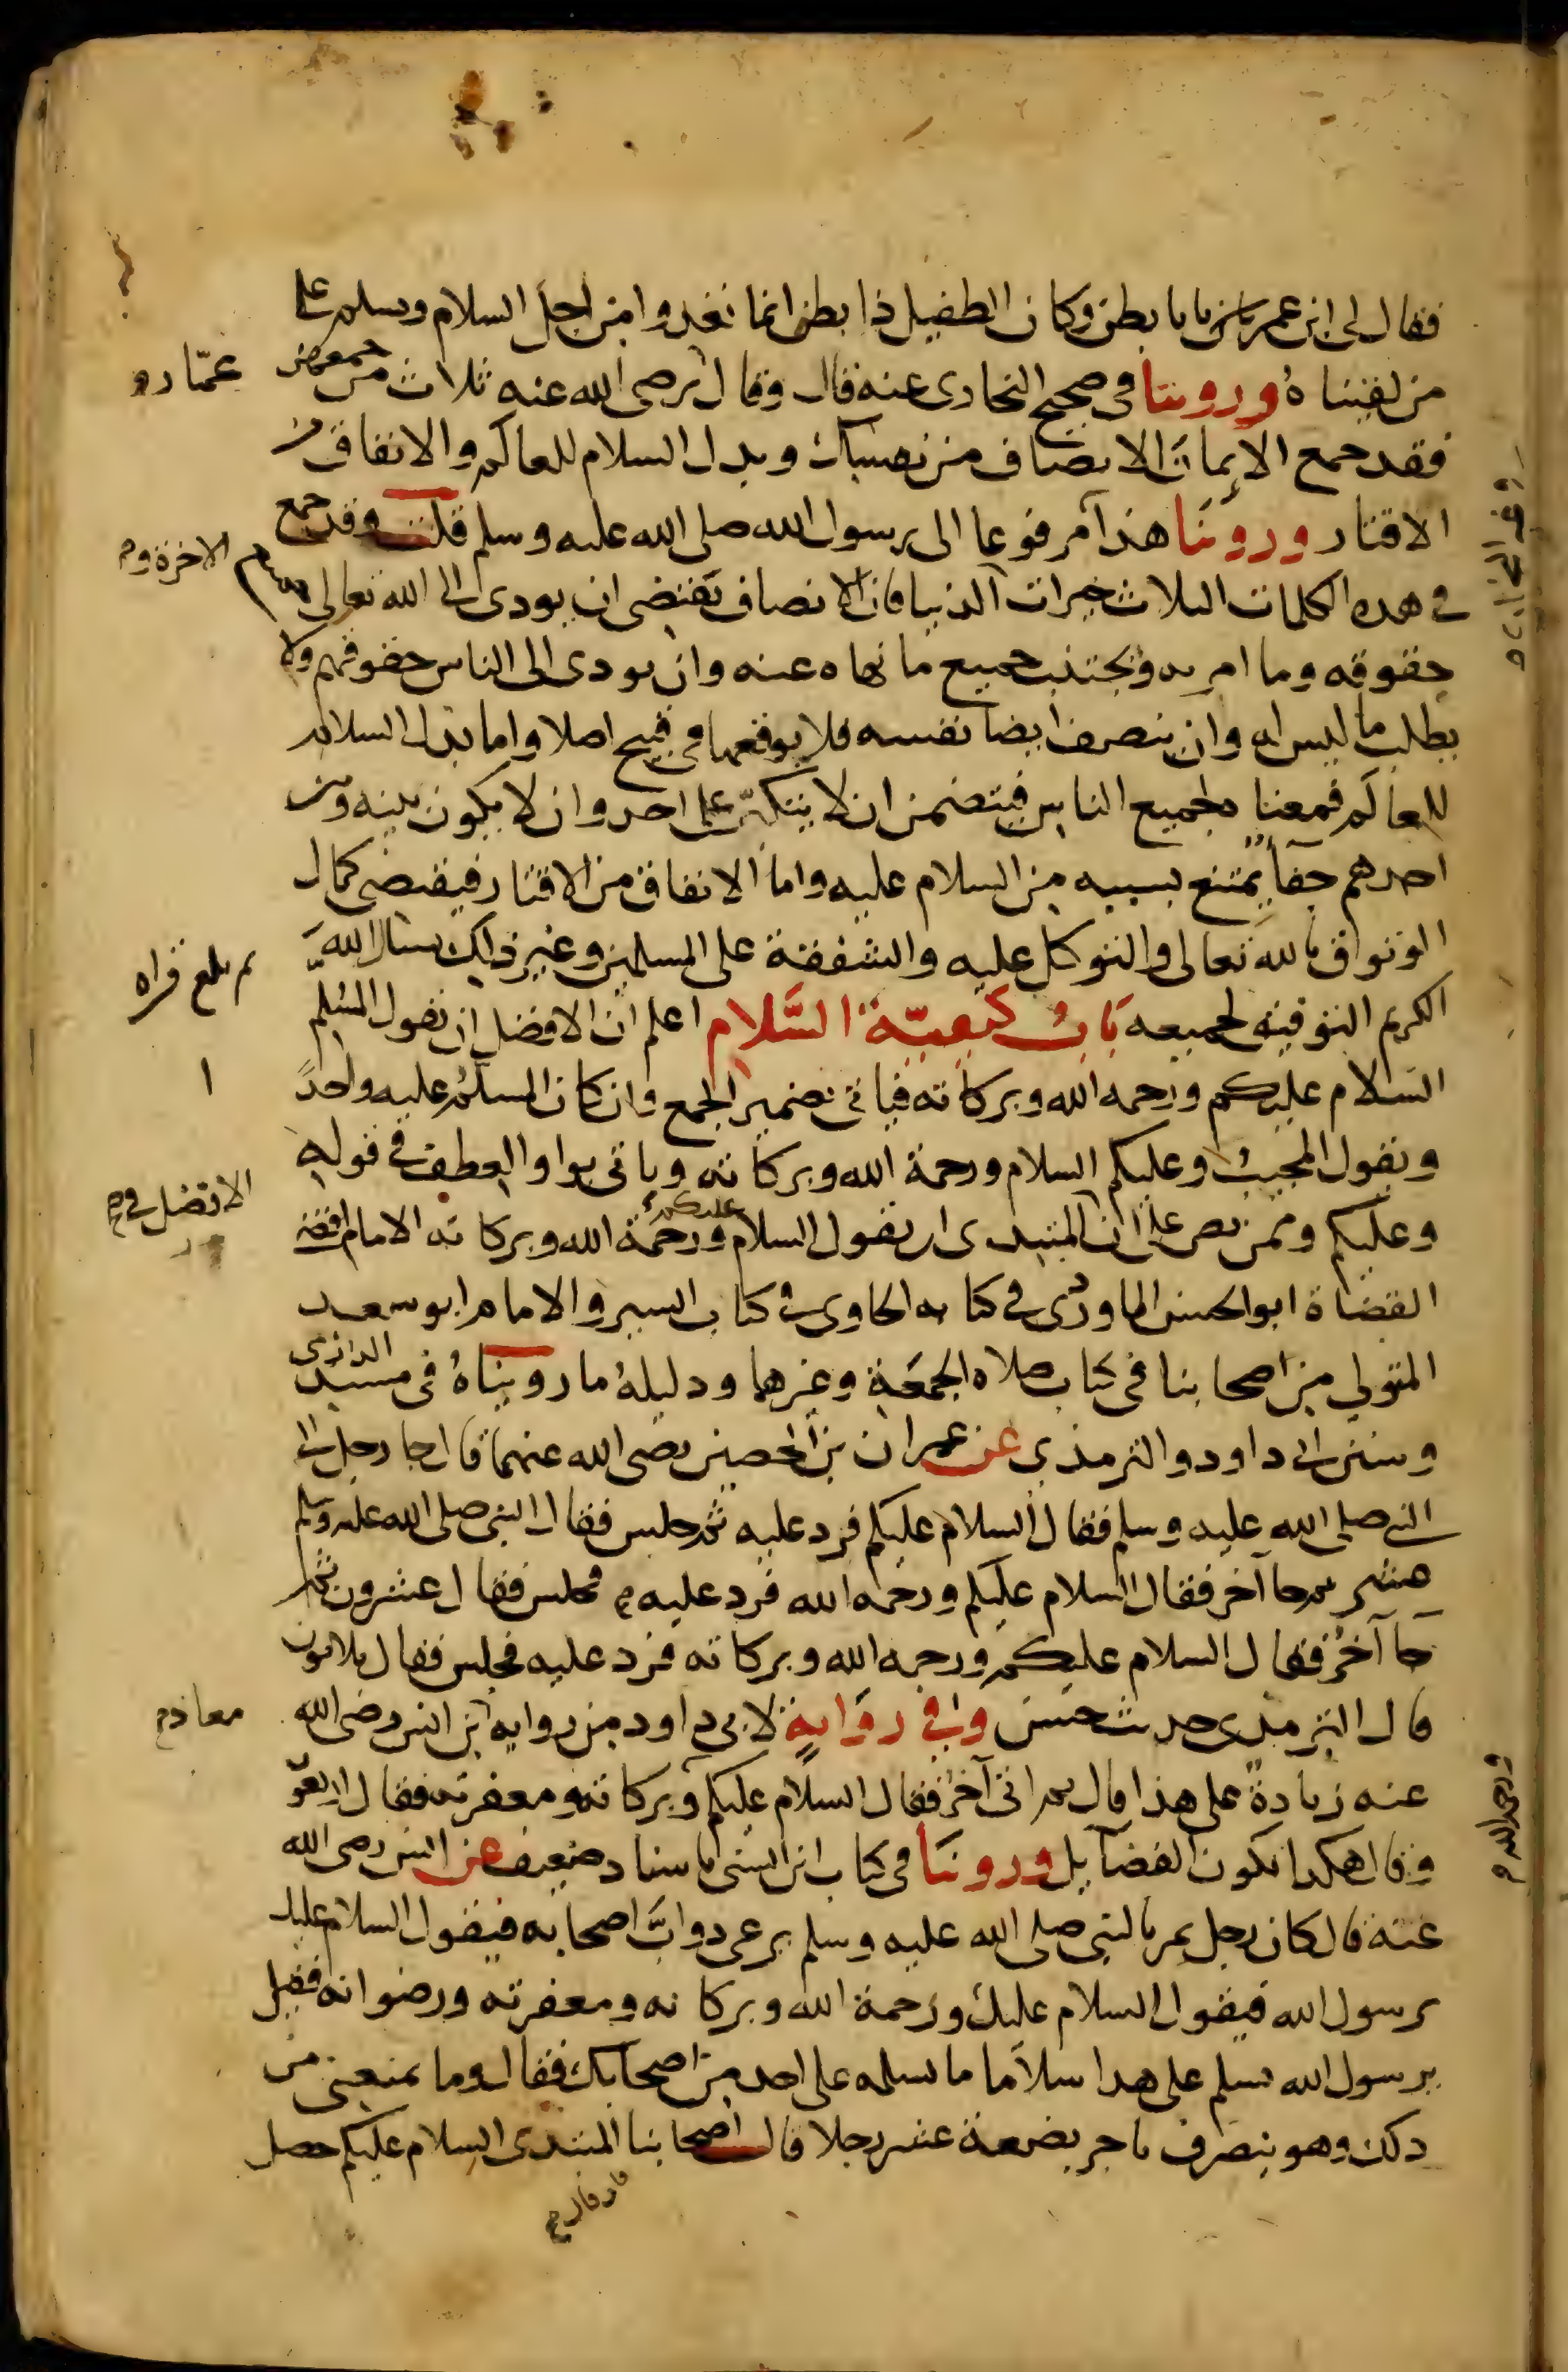 فقال لى ابن عمر يابا بطن وكان الطفيل ذا بطن انما نغدوا من اجل السلام وسلم على
من لقيناهُ وروينا فى صحيح البخارى عنه قال وقال رضى الله عنه ثلاث من جمعهن
عمّار و
فقد جمع الإيمانَ الانصاف من نفسك وبذل السلام للعالم والانفاق من
الاقتار وروينا هذا مرفوعا الى رسول الله صلى الله عليه وسلم قلت وقد جمع
فى هذه الكلمات الثلاث خيرات الدنيا فان الانصاف يقتضى ان يودى الى الله تعالى جميع
الاخرة و
حقوقه وما امر به ويجتنب جميع ما نهاه عنه وان يودى الى الناس حقوقهم ولا
يطلب ما ليس له وان ينصف ايضا نفسه فلا يوقعها فى قبيح اصلا واما بذل السلام
للعالَم فمعناه لجميع الناس فيتضمن ان لا يتكبّر على احد وان لا يكون بينه وبين
احدهم جفاً يمتنع بسببه من السلام عليه واما الانفاق من الاقتار فيقتضى كمال
الوثوق بالله تعالى والتوكل عليه والشفقة على المسلمين وغير ذلك نسال الله
الكريم التوفيق لجميعه بَابُ كيفيّة السَّلام اعلم ان الافضل ان يقول المُسلّم
ثم بلغ قراه
السلام عليكم ورحمة الله وبركاته فياتى بضمير الجمع وان كان المسلَّم عليه واحداً
ويقول المجيب وعليكم السلام ورحمة الله وبركاته وياتى بواو العطف فى قوله
وعليكم وممن نص على ان المبتدى ان يقول السلام عليكم ورحمة الله وبركاته الامام اقضى
الافضل فى
القضاة ابو الحسن الماوردى فى كتابه الحاوى فى كتاب السير والامام ابو سعد
المتولى من اصحابنا فى كتاب صلاه الجمعة وغيرهما ودليلهُ ما رويناهُ فى مسند الدارمى
وسنن ابى داود والترمذي عن عمران بن الحصين رضى الله عنهما قال جا رجل الى
النبى صلى الله عليه وسلم فقال السلام عليكم فرد عليه ثم جلس فقال النبى صلى الله عليه وسلم
عشر ثم جا آخر فقال السلام عليكم ورحمة الله فرد عليه فجلس فقال عشرون ثم
جا آخرُ فقال السلام عليكم ورحمة الله وبركاته فرد عليه فجلس فقال ثلاثون
قال الترمذى حديث حسن وفى روَايةٍ لابى داود من رواية ابن انس رضى الله
معاذ
عنه زيادةً على هذا قال ثم اتى آخر فقال السلام عليكم وبركاته ومغفرته فقال اربعو
وقال هكذا تكون الفضآيل وروينا فى كتاب ابن السنى باسناد ضعيف عن انس رضى الله
عنه قال كان رجل يمر بالنبى صلى الله عليه وسلم يرعى دوابَّ اصحابه فيقول السلام عليك
يرسول الله فيقول السلام عليك ورحمة الله وبركاته ومغفرته ورضوانه فقيل
يرسول الله تسلم على هذا سلاَما ما تسلمه على احد من اصحابك فقال وما يمنعنى من
ذلك وهو ينصرف باجر بضعة عشر رجلا قال اصحابنا المبتدى السلام عليكم حصل